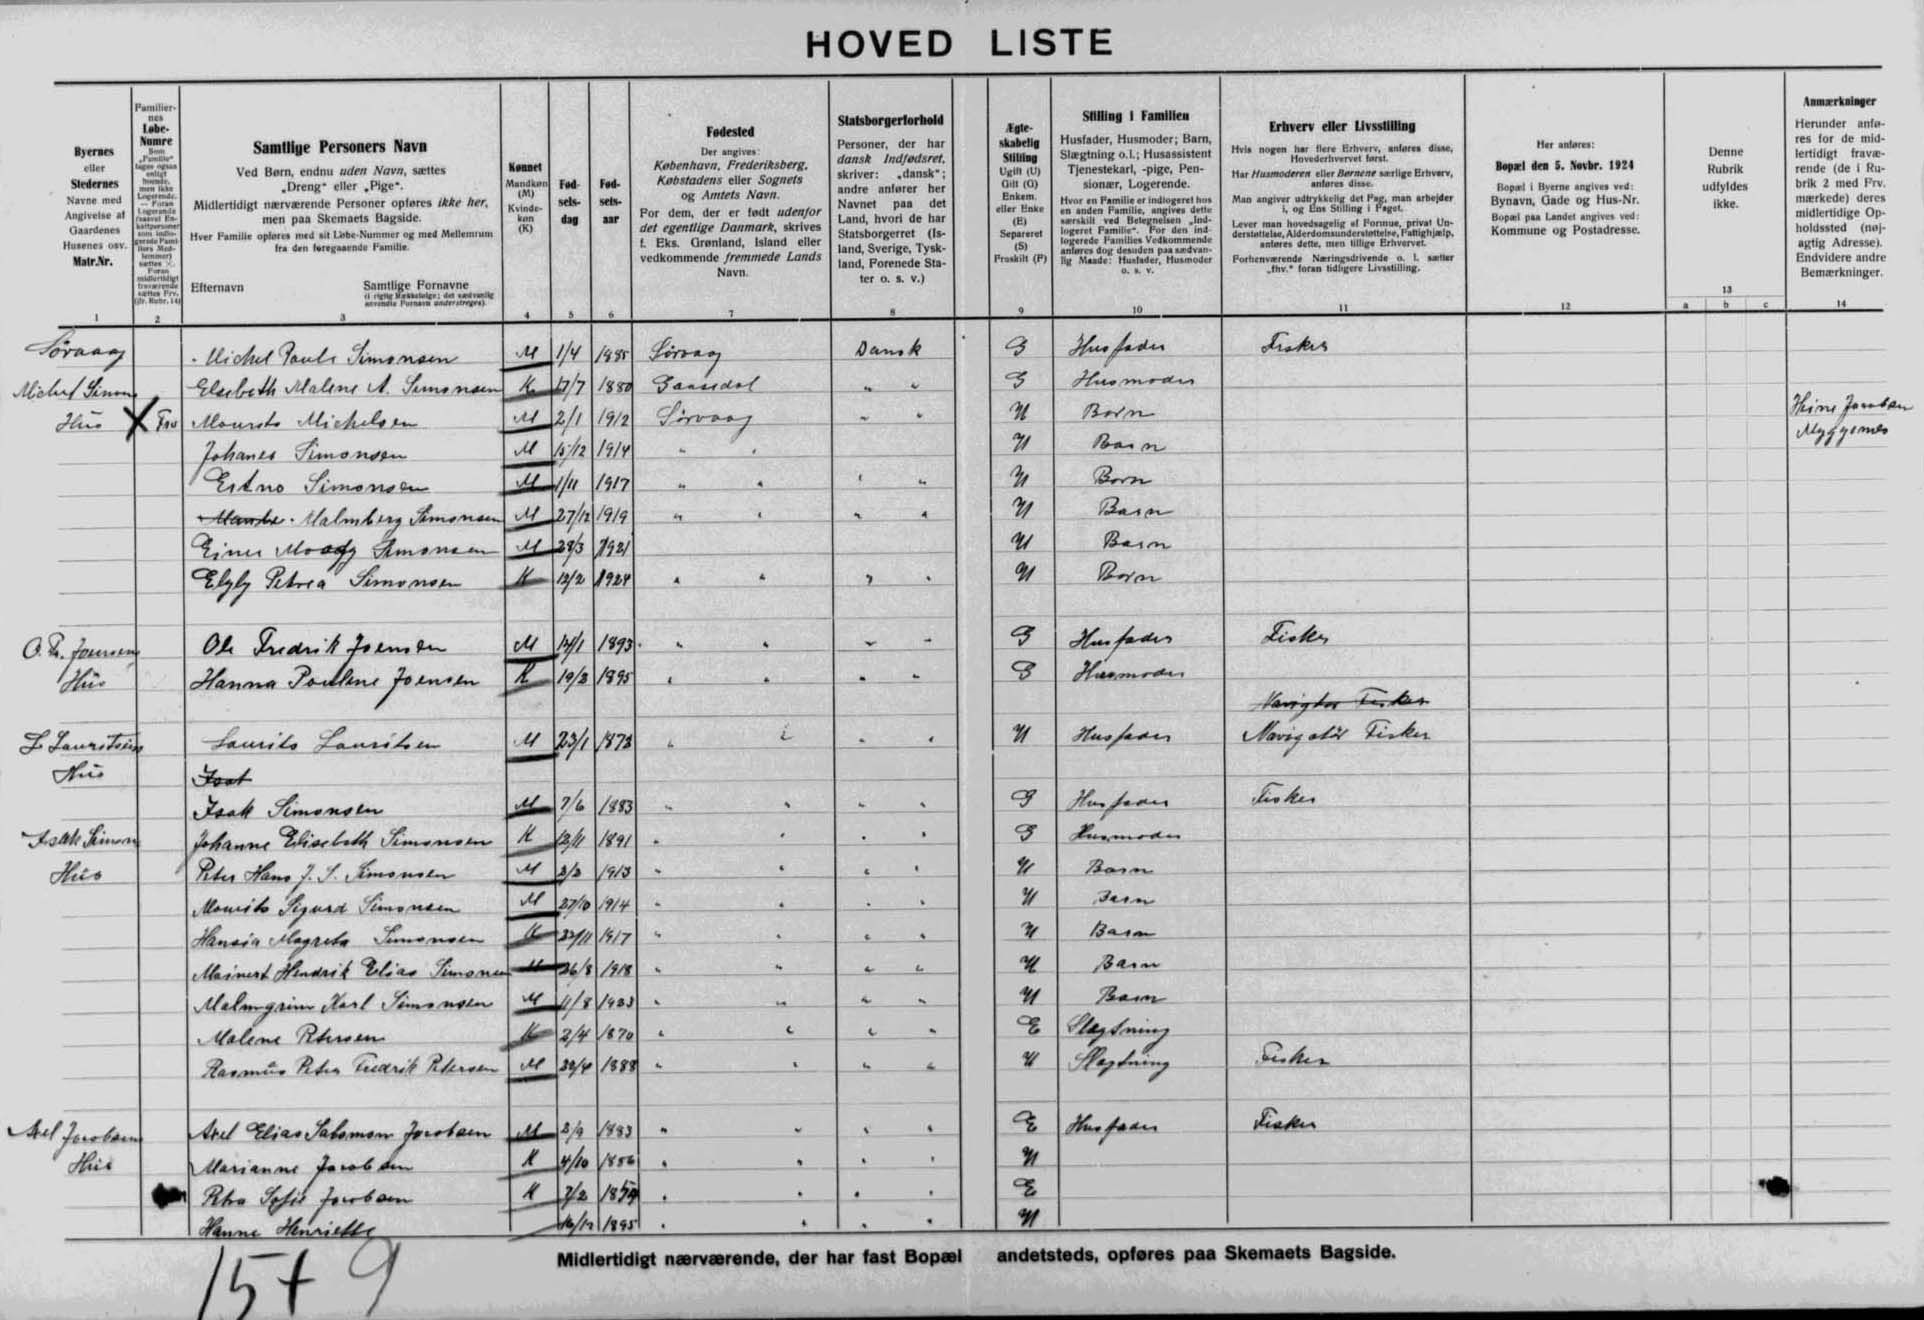 HOVED LISTE
Byernes eller Stedernes Navne med Angivelse af Gaardenes Husenes osv. Matr.Nr.
Familiernes Løbe-Numre
Samtlige Personers Navn
Ved Børn, endnu uden Navn, sættes „Dreng“ eller „Pige“.
Midlertidigt nærværende Personer opføres ikke her, men paa Skemaets Bagside.
Hver Familie opføres med sit Løbe-Nummer og med Mellemrum fra den foregaaende Familie.
Efternavn Samtlige Fornavne
(i rigtig Rækkefølge; det sædvanlig anvendte Fornavn understreges).
Kønnet Mandkøn (M) Kvindekøn (K)
Fødselsdag
Fødselsaar
Fødested
Der angives: København, Frederiksberg, Købstadens eller Sognets og Amtets Navn.
For dem, der er født udenfor det egentlige Danmark, skrives f. Eks. Grønland, Island eller vedkommende fremmede Lands Navn.
Statsborgerforhold
Personer, der har dansk Indfødsret, skriver: „dansk“; andre anfører her Navnet paa det Land, hvori de har Statsborgerret (Island, Sverige, Tyskland, Forenede Stater o. s. v.)
Ægteskabelig Stilling Ugift (U) Gift (G) Enkem. eller Enke (E) Separeret (S) Fraskilt (F)
Stilling i Familien
Husfader, Husmoder; Barn, Slægtning o.l.; Husassistent Tjenestekarl, -pige, Pensionær, Logerende.
Hvor en Familie er indlogeret hos en anden Familie, angives dette særskilt ved Betegnelsen „Indlogeret Familie“. For den indlogerede Families Vedkommende anføres dog desuden paa sædvanlig Maade: Husfader, Husmoder o. s. v.
Erhverv eller Livsstilling
Hvis nogen har flere Erhverv, anføres disse, Hovederhvervet først.
Har Husmoderen eller Børnene særlige Erhverv, anføres disse.
Man angiver udtrykkelig det Fag, man arbejder i, og Ens Stilling i Faget.
Lever man hovedsagelig af Formue, privat Understøttelse, Alderdomsunderstøttelse, Fattighjælp, anføres dette, men tillige Erhvervet.
Forhenværende Næringsdrivende o. l. sætter „fhv.“ foran tidligere Livsstilling.
Her anføres: Bopæl den 5. Novbr. 1924
Bopæl i Byerne angives ved: Bynavn, Gade og Hus-Nr.
Bopæl paa Landet angives ved: Kommune og Postadresse.
Denne Rubrik udfyldes ikke.
Anmærkninger
Herunder anføres for de midlertidigt fraværende (de i Rubrik 2 med Frv. mærkede) deres midlertidige Opholdssted (nøjagtig Adresse). Endvidere andre Bemærkninger.
1 2 3 4 5 6 7 8 9 10 11 12 13 a b c 14
Sørvaag Michel Pauli Simonsen M 1/4 1885 Sørvaag Dansk G Husfader Fisker
Michel Simons Elsebeth Malene A. Simonsen K 17/7 1880 Gaasedal " " G Husmoder
Hús X Frv Mourits Michelsen M 2/1 1912 Sørvaag " " U Barn Heine Jacobsen
Myggenes
Johanes Simonsen M 15/12 1914 " " U Barn
Simonsen M 1/11 1917 " " " " U Barn
Malmberg Simonsen M 27/12 1919 " " " " U Barn
Einer Simonsen M 28/3 1921 U Barn
Petrea Simonsen K 12/2 1924 " " " " U Barn
Ole Fredrik Joensen M 14/1 1893 " " " " G Husfader Fisker
O. Fr. Joensens Hús Hanna Poulene Joensen K 1895 " " " " G Husmoder
Navigtør Fisker
L Lauritsens Laurits Lauritsen M 23/1 1873 " " " " U Husfader Navigatør Fisker
Hús Isat
Isak Simonsen M 7/6 1883 " " " " G Husfader Fisker
Isak Simons Johanne Elisebeth Simonsen K 1891 " " " " G Husmoder
Hús Peter Hans J. S. Simonsen M 1913 " " " " U Barn
Mourits Sigurd Simonsen M 27/10 1914 " " " " U Barn
Hansia Magreta Simonsen K 22/11 1917 " " " " U Barn
Meinert Hendrik Elias Simonsen M 26/8 1918 " " " " U Barn
Malmgrim Karl Simonsen M 11/8 1923 " " " " U Barn
Malene Petersen K 2/4 1870 " " " " E Slægtning
Rasmus Peter Fredrik Petersen M 1888 " " " " U Slægtning Fisker
Axel Jacobsens Axel Elias Salomon Jacobsen M 2/9 1883 " " " " E Husfader Fisker
Hús Marianne Jacobsen K 4/10 1856 " " " " U
Petra Sofie Jacobsen K 7/2 " " " " E
Hanne Henriette 1895 " " " " U
Midlertidigt nærværende, der har fast Bopæl andetsteds, opføres paa Skemaets Bagside.
15 + 9